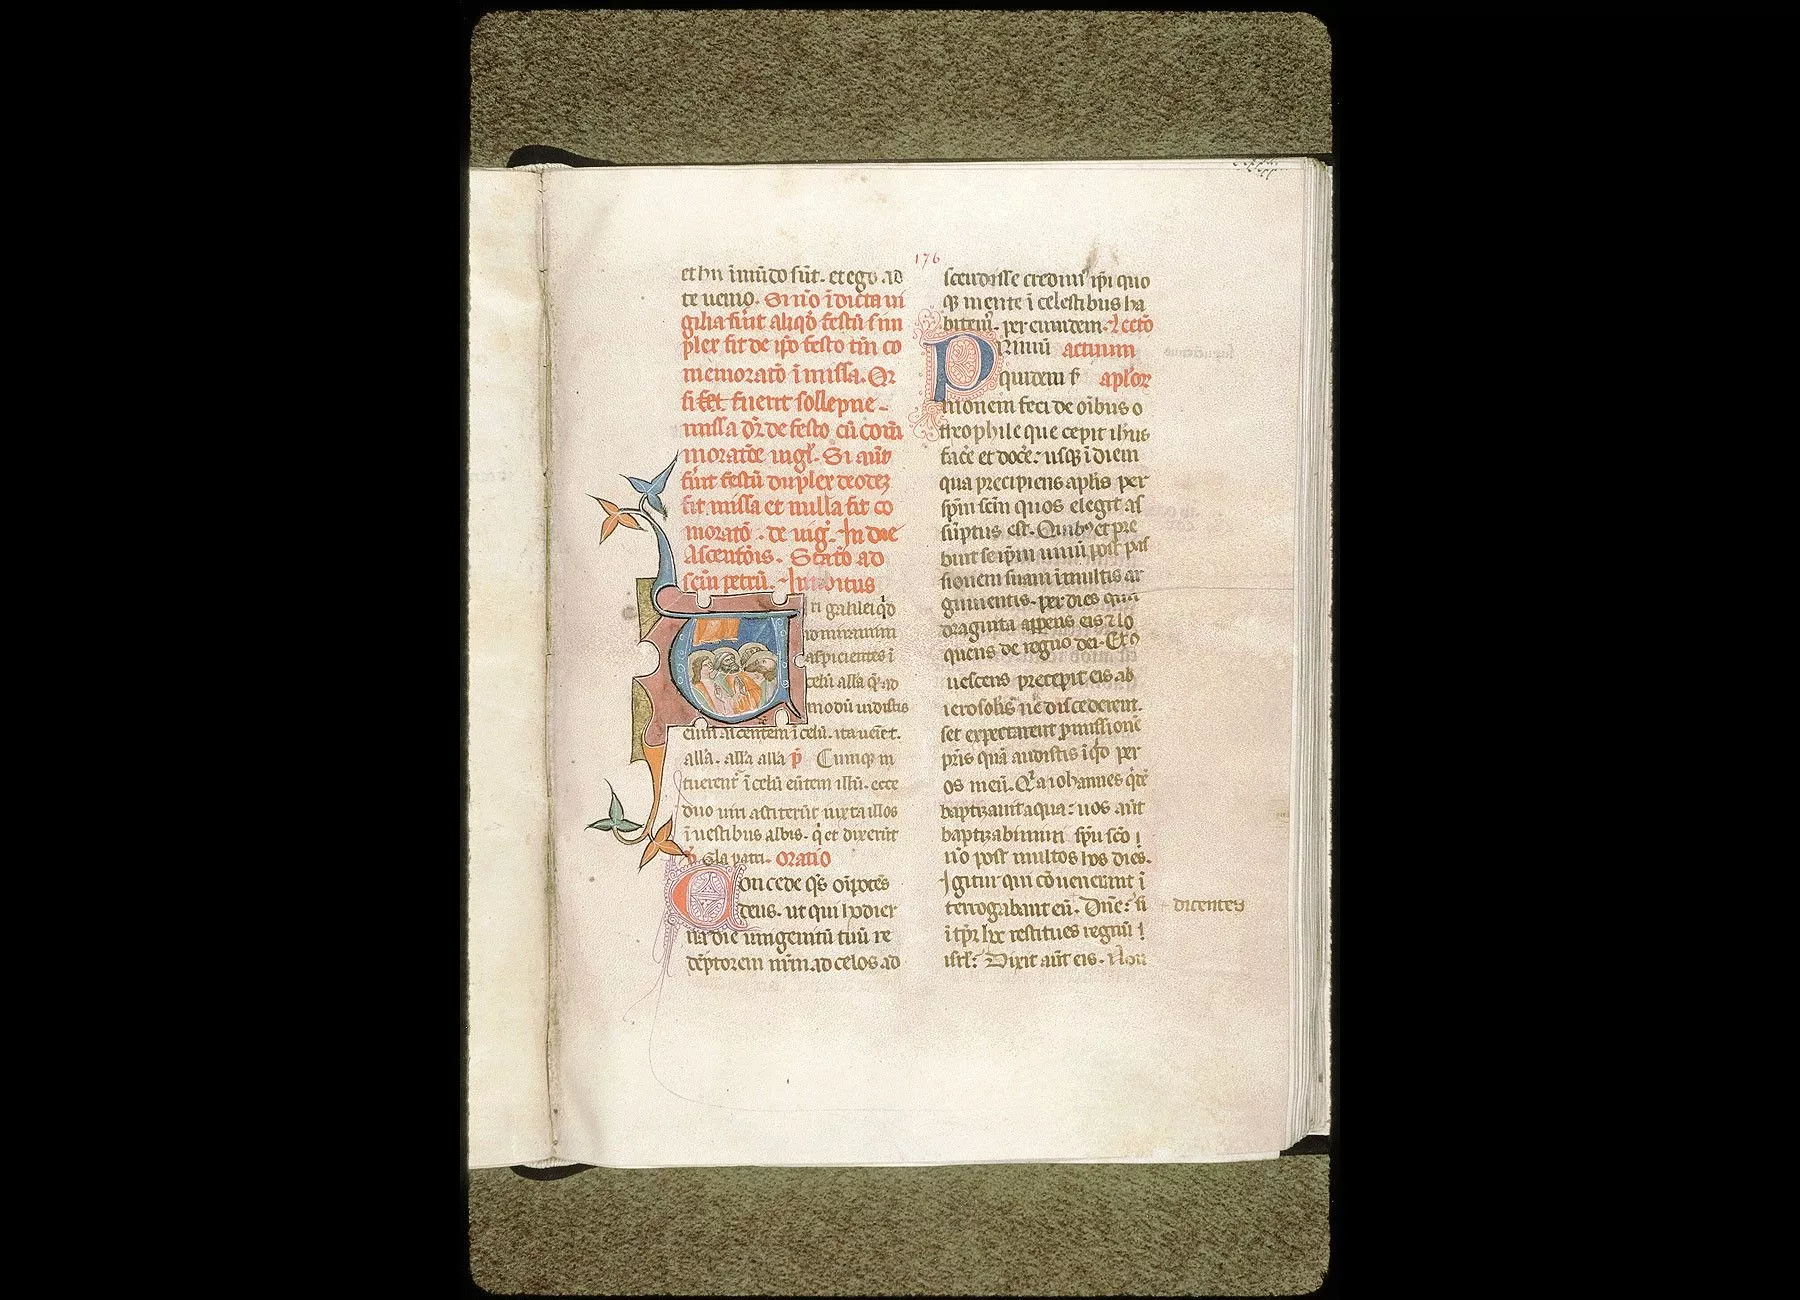 176
et hii ī mūdo sūt. et ego ad
te uenio. Si uō ī dicta ui
gilia fiūt aliqd̄ festū sim
plex fit de ip̄o festo tm̄ co
memoratō ī missa. Qr
si fuerit sollepne
missa dr̄ de festo cū com̄
moratōe uigl̄. Si aūt
fūit festū duplex de o
fit missa et nulla fit co
moratō. de uig. In die
Ascentōis. Statō ad
scm̄ petrū. Introitus
iri galilei qd̄
admiramini
aspicientes ī
celū alla q̄ ad
modū uidistis
eum ascentem ī celū. ita ueīet.
alla. alla alla p̄ Cumq; in
tuerent̄ ī celū eūtem illū. ecce
duo uiri astiterūt iuxta illos
ī uestibus albis. q̄ et dixerūt
Gla patri. Oratio
Concede qs̄ oīpotēs
deus. ut qui hodier
na die unigenitū tuū re
dēptorem nr̄m ad celos ad
scendisse credim̄ ip̄i quo
q; mente ī celestibus ha
bitem̄. per eumdem. Lectō
Primū actuum
quidem s̄ aplōr
monem feci de oīb̄us o
theophile que cepit ihūs
facē et docē: usq; ī diem
qua precipiens aplīs per
sp̄m scm̄ quos elegit as
sūptus est. Quib; et pre
buit se ip̄m uiuū post pas
sionem suam ī multis ar
gumentis. per dies qua
draginta appens eis ⁊ lo
quens de regno dei. Et cō
uescens precepit eis ab
ierosolis̄ ne discederent.
set expectarent pmissionē
pr̄is quā audistis īqo per
os meū. Qa iohannes qdē
baptizauit aqua: uos aūt
baptizabimini sp̄u scō
nō post multos hos dies.
Igitur qui cōuenerant ī
terrogabant eū. Dn̄e: si + dicentes
ī tp̄r hoc restitues regnū
isrl̄: Dixit aūt eis. Non